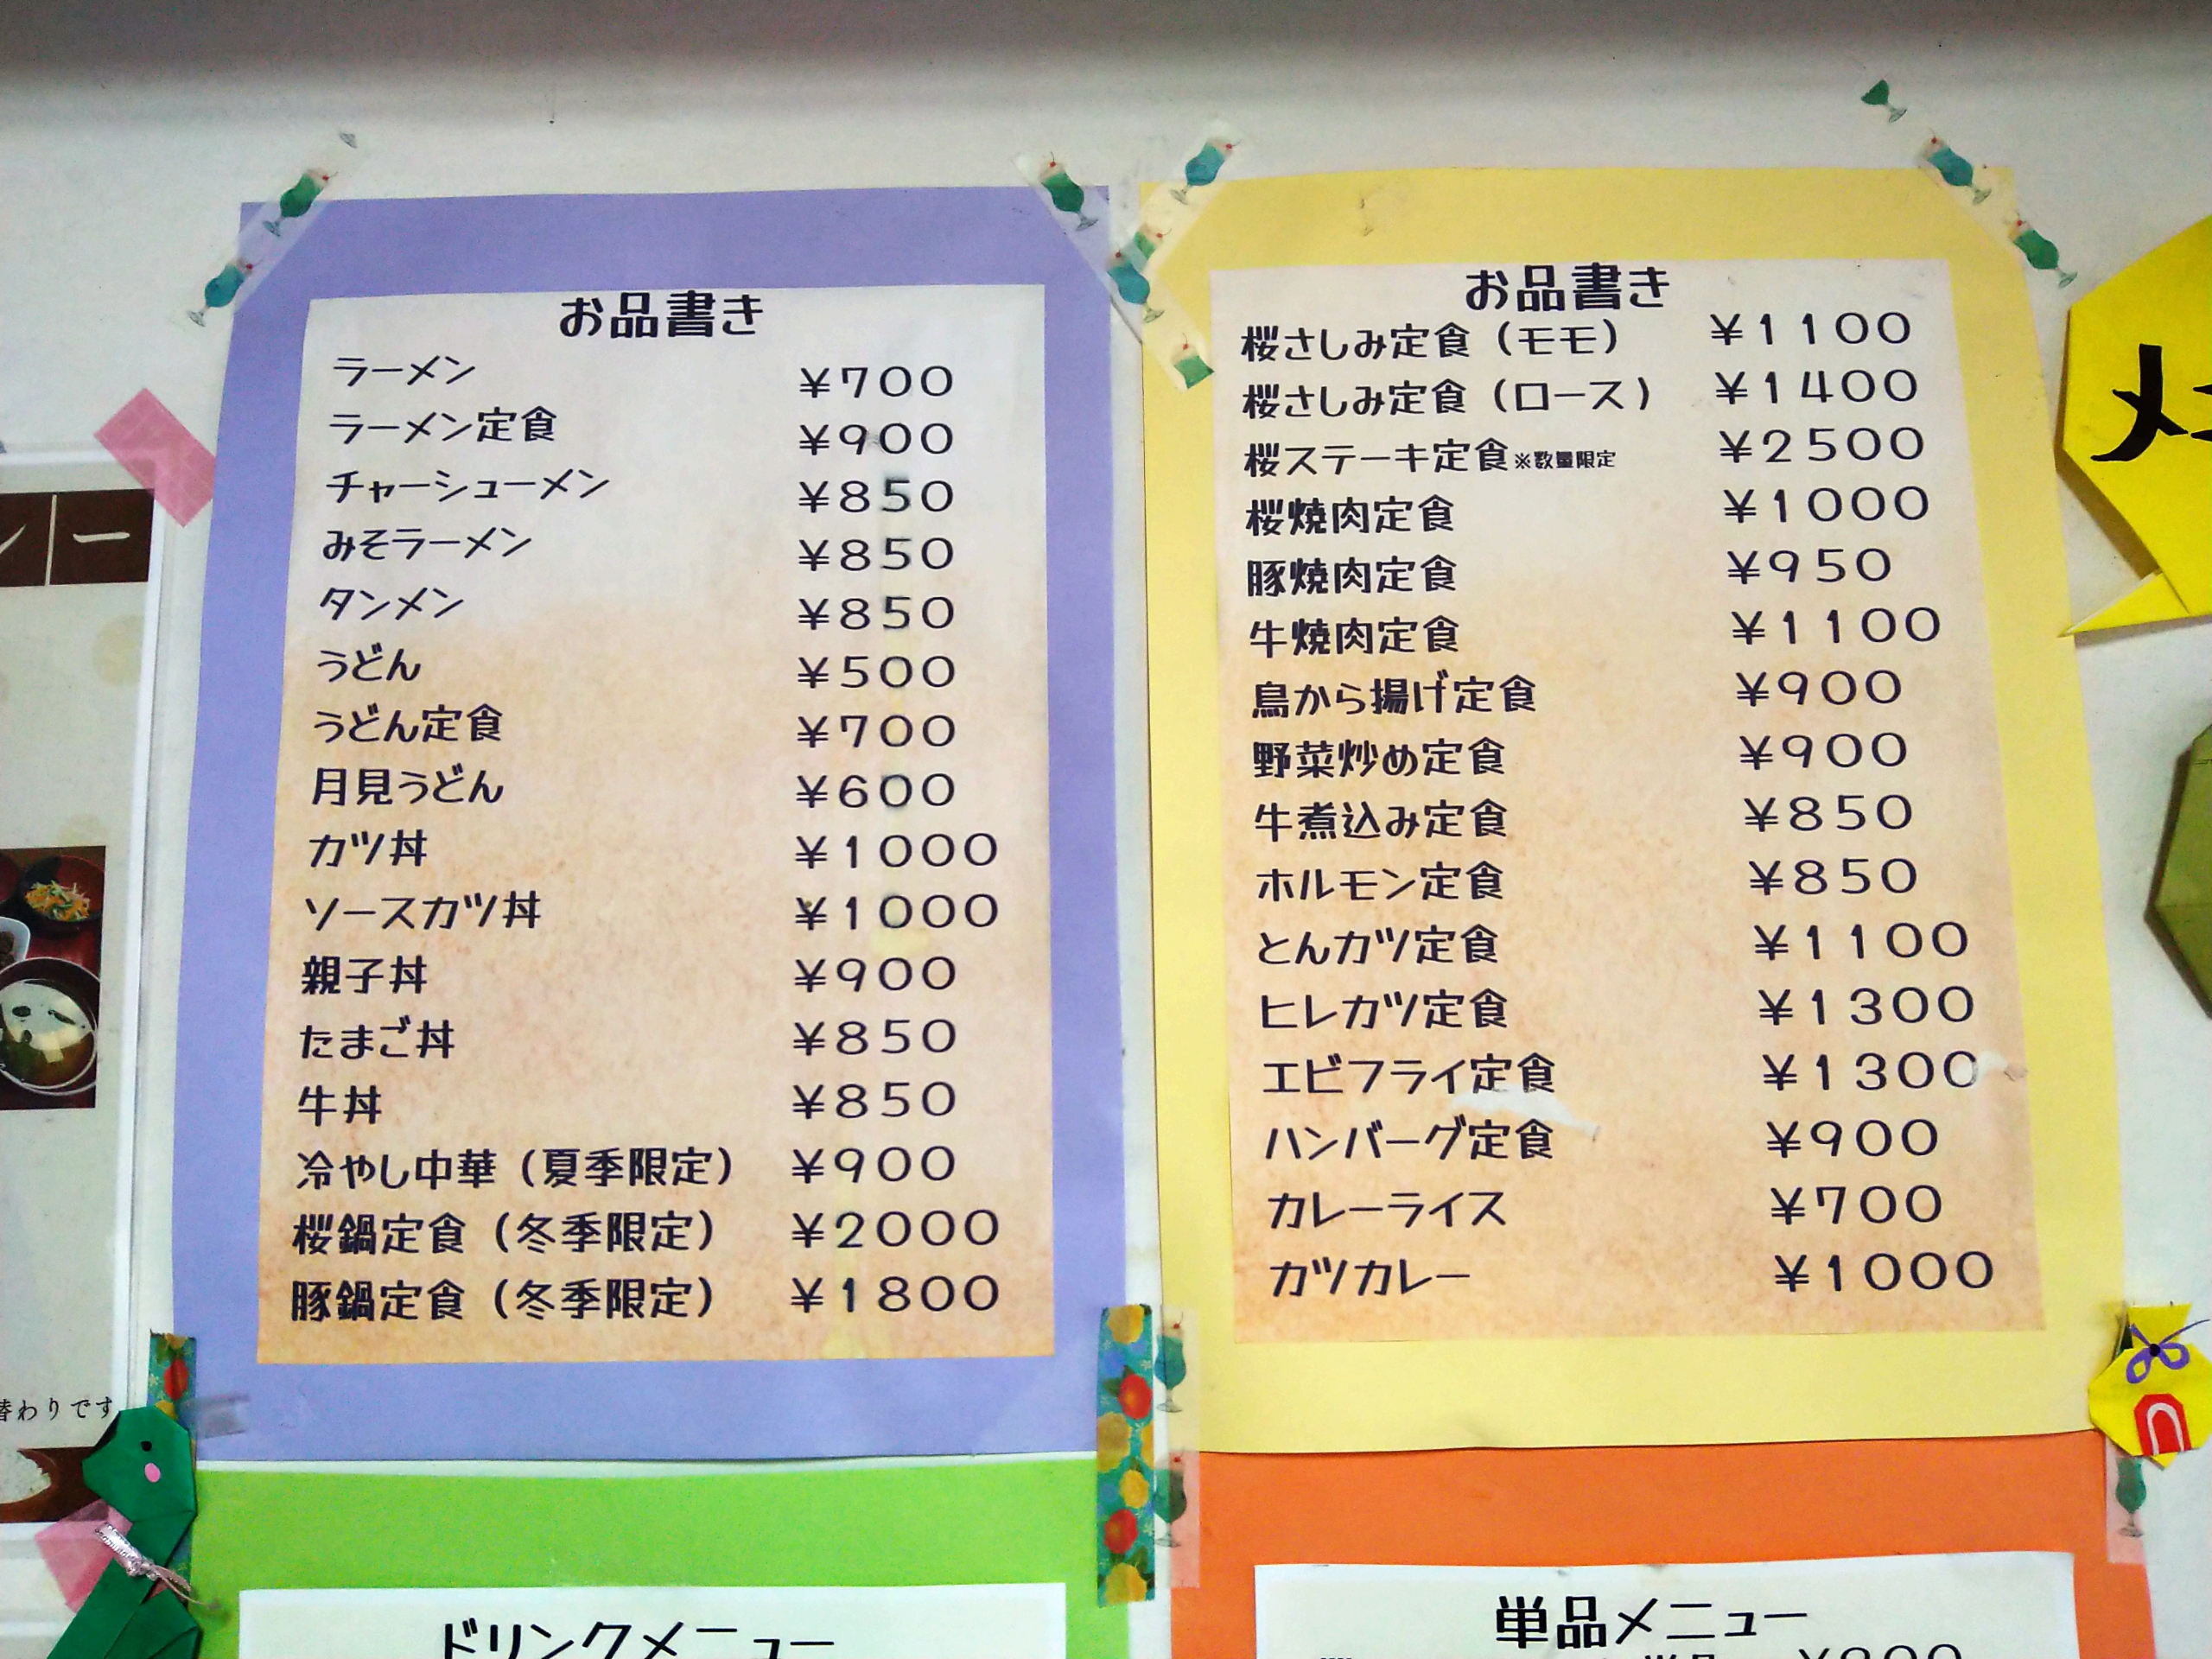 お品書き
ラーメン ¥700
ラーメン定食 ¥900
チャーシューメン ¥850
みそラーメン ¥850
タンメン ¥850
うどん ¥500
うどん定食 ¥700
月見うどん ¥600
カツ丼 ¥1000
ソースカツ丼 ¥1000
親子丼 ¥900
たまご丼 ¥850
牛丼 ¥850
冷やし中華（夏季限定） ¥900
桜鍋定食（冬季限定） ¥2000
豚鍋定食（冬季限定） ¥1800
お品書き
桜さしみ定食（モモ） ¥1100
桜さしみ定食（ロース） ¥1400
桜ステーキ定食※数量限定 ¥2500
桜焼肉定食 ¥1000
豚焼肉定食 ¥950
牛焼肉定食 ¥1100
鳥から揚げ定食 ¥900
野菜炒め定食 ¥900
牛煮込み定食 ¥850
ホルモン定食 ¥850
とんカツ定食 ¥1100
ヒレカツ定食 ¥1300
エビフライ定食 ¥1300
ハンバーグ定食 ¥900
カレーライス ¥700
カツカレー ¥1000
ドリンクメニュー
単品メニュー
ー
替わりです
メ